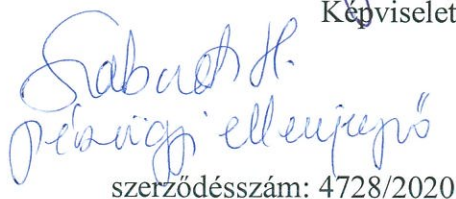 Képviselet
Szabó H.
pénzügyi ellenjegyző
szerződésszám: 4728/2020